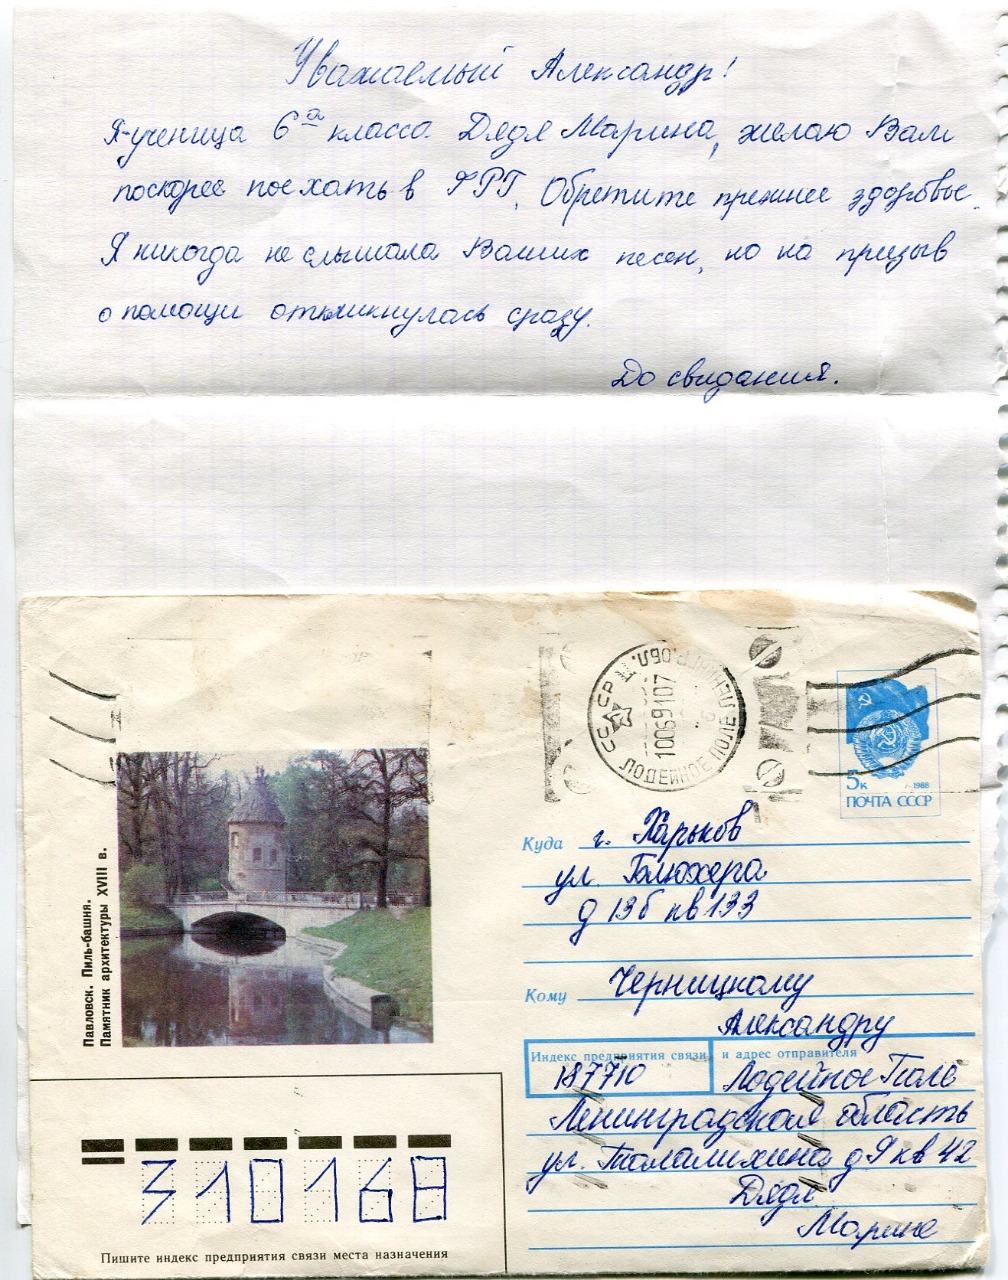 Уважаемый Александр!
Я-ученица 6а класса Дядя Марина, желаю Вам
поскорее поехать в ФРГ. Обретите прежнее здоровье.
Я никогда не слышала Ваших песен, но на призыв
о помощи откликнулась сразу.
До свидания.
СССР
ЛОДЕЙНОЕ ПОЛЕ
10069107
5к
1988
ПОЧТА СССР
Павловск. Пиль-башня.
Памятник архитектуры XVIII в.
Куда г. Харьков
ул. Блюхера
д 13б кв 133
Кому Черницкому
Александру
Индекс предприятия связи и адрес отправителя
187710 Лодейное Поле
Ленинградская область
ул. Талалихина д 9 кв 42
Дядя
Марине
310168
Пишите индекс предприятия связи места назначения